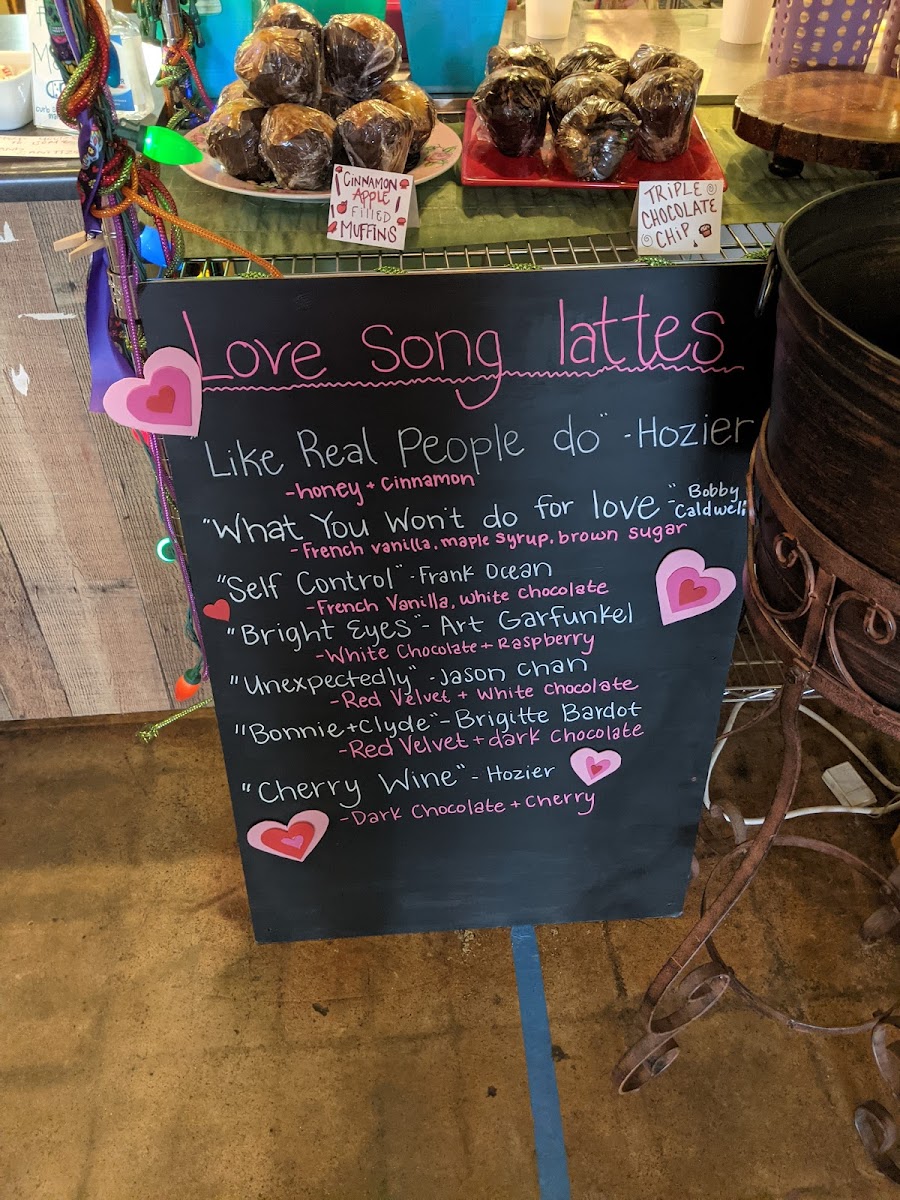 CINNAMON
APPLE
FILLED
MUFFINS
TRIPLE
CHOCOLATE
CHIP
Love Song lattes
Like Real People do" - Hozier
-honey + Cinnamon
"What You Won't do for love" - Bobby Caldwell
-French vanilla, maple syrup, brown sugar
"Self Control" - Frank Ocean
-French Vanilla, white chocolate
"Bright Eyes" - Art Garfunkel
-White Chocolate + Raspberry
"Unexpectedly" - Jason chan
-Red Velvet + White chocolate
"Bonnie + Clyde" - Brigitte Bardot
-Red Velvet + dark Chocolate
"Cherry Wine" - Hozier
-Dark Chocolate + Cherry